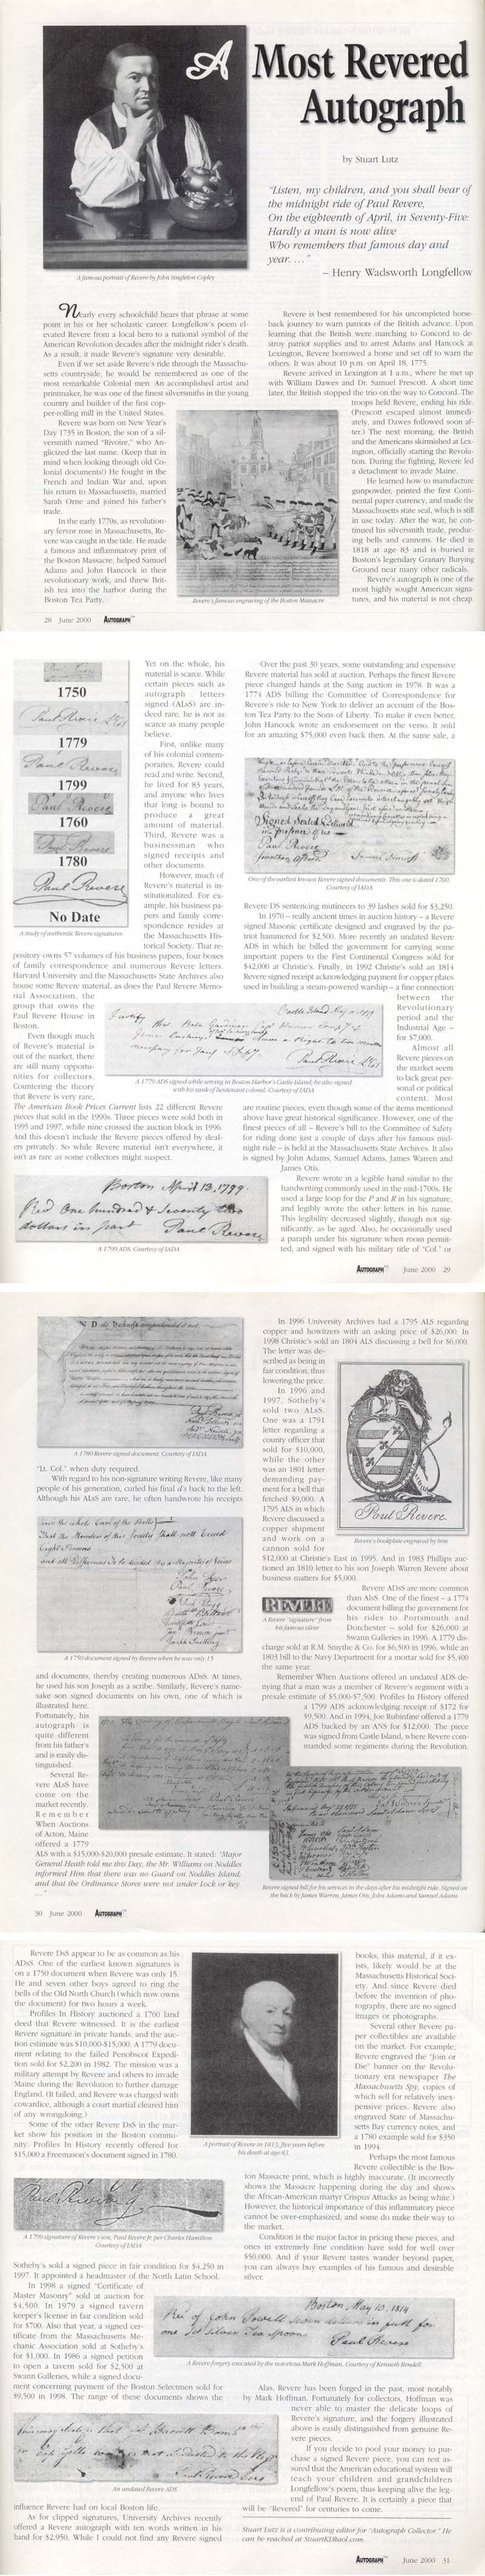 A Most Revered
Autograph
by Stuart Lutz
"Listen, my children, and you shall hear of
the midnight ride of Paul Revere,
On the eighteenth of April, in Seventy-Five:
Hardly a man is now alive
Who remembers that famous day and
year. ..."
– Henry Wadsworth Longfellow
A famous portrait of Revere by John Singleton Copley
Nearly every schoolchild hears that phrase at some
point in his or her scholastic career. Longfellow's poem el-
evated Revere from a local hero to a national symbol of the
American Revolution decades after the midnight rider's death.
As a result, it made Revere's signature very desirable.
Even if we set aside Revere's ride through the Massachu-
setts countryside, he would be remembered as one of the
most remarkable Colonial men. An accomplished artist and
printmaker, he was one of the finest silversmiths in the young
country and builder of the first cop-
per-rolling mill in the United States.
Revere was born on New Year's
Day 1735 in Boston, the son of a sil-
versmith named "Rivoire," who An-
glicized the last name. (Keep that in
mind when looking through old Co-
lonial documents!) He fought in the
French and Indian War and, upon
his return to Massachusetts, married
Sarah Orne and joined his father's
trade.
In the early 1770s, as revolution-
ary fervor rose in Massachusetts, Re-
vere was caught in the tide. He made
a famous and inflammatory print of
the Boston Massacre, helped Samuel
Adams and John Hancock in their
revolutionary work, and threw Brit-
ish tea into the harbor during the
Boston Tea Party.
Revere is best remembered for his uncompleted horse-
back journey to warn patriots of the British advance. Upon
learning that the British were marching to Concord to de-
stroy patriot supplies and to arrest Adams and Hancock at
Lexington, Revere borrowed a horse and set off to warn the
others. It was about 10 p.m. on April 18, 1775.
Revere arrived in Lexington at 1 a.m., where he met up
with William Dawes and Dr. Samuel Prescott. A short time
later, the British stopped the trio on the way to Concord. The
troops held Revere, ending his ride.
(Prescott escaped almost immedi-
ately, and Dawes followed soon af-
ter.) The next morning, the British
and the Americans skirmished at Lex-
ington, officially starting the Revolu-
tion. During the fighting, Revere led
a detachment to invade Maine.
He learned how to manufacture
gunpowder, printed the first Conti-
nental paper currency, and made the
Massachusetts state seal, which is still
in use today. After the war, he con-
tinued his silversmith trade, produc-
ing bells and cannons. He died in
1818 at age 83 and is buried in
Boston's legendary Granary Burying
Ground near many other radicals.
Revere's autograph is one of the
most highly sought American signa-
tures, and his material is not cheap.
Revere's famous engraving of the Boston Massacre
28 June 2000 AUTOGRAPH
1750
1779
1799
1760
1780
No Date
A study of authentic Revere signatures
Yet on the whole, his
material is scarce. While
certain pieces such as
autograph letters
signed (ALsS) are in-
deed rare, he is not as
scarce as many people
believe.
First, unlike many
of his colonial contem-
poraries, Revere could
read and write. Second,
he lived for 83 years,
and anyone who lives
that long is bound to
produce a great
amount of material.
Third, Revere was a
businessman who
signed receipts and
other documents.
However, much of
Revere's material is in-
stitutionalized. For ex-
ample, his business pa-
pers and family corre-
spondence resides at
the Massachusetts His-
torical Society. That re-
pository owns 57 volumes of his business papers, four boxes
of family correspondence and numerous Revere letters.
Harvard University and the Massachusetts State Archives also
house some Revere material, as does the Paul Revere Memo-
rial Association, the
group that owns the
Paul Revere House in
Boston.
Even though much
of Revere's material is
out of the market, there
are still many opportu-
nities for collectors.
Countering the theory
that Revere is very rare,
The American Book Prices Current lists 22 different Revere
pieces that sold in the 1990s. Three pieces were sold both in
1995 and 1997, while nine crossed the auction block in 1996.
And this doesn't include the Revere pieces offered by deal-
ers privately. So while Revere material isn't everywhere, it
isn't as rare as some collectors might suspect.
Boston April 13, 1799
Recd One hundred & Seventy two
dollars in part Paul Revere
A 1799 ADS. Courtesy of IADA
Over the past 30 years, some outstanding and expensive
Revere material has sold at auction. Perhaps the finest Revere
piece changed hands at the Sang auction in 1978. It was a
1774 ADS billing the Committee of Correspondence for
Revere's ride to New York to deliver an account of the Bos-
ton Tea Party to the Sons of Liberty. To make it even better,
John Hancock wrote an endorsement on the verso. It sold
for an amazing $75,000 even back then. At the same sale, a
One of the earliest known Revere signed documents. This one is dated 1760.
Courtesy of IADA
Revere DS sentencing mutineers to 39 lashes sold for $3,250.
In 1970 – really ancient times in auction history – a Revere
signed Masonic certificate designed and engraved by the pa-
triot hummered for $2,500. More recently an undated Revere
ADS in which he billed the government for carrying some
important papers to the First Continental Congress sold for
$42,000 at Christie's. Finally, in 1992 Christie's sold an 1814
Revere signed receipt acknowledging payment for copper plates
used in building a steam-powered warship – a fine connection
between the
Revolutionary
period and the
Industrial Age –
for $7,000.
Almost all
Revere pieces on
the market seem
to lack great per-
sonal or political
content. Most
A 1779 ADS signed while serving in Boston Harbor's Castle Island; he also signed
with his rank of lieutenant colonel. Courtesy of IADA
are routine pieces, even though some of the items mentioned
above have great historical significance. However, one of the
finest pieces of all – Revere's bill to the Committee of Safety
for riding done just a couple of days after his famous mid-
night ride – is held at the Massachusetts State Archives. It also
is signed by John Adams, Samuel Adams, James Warren and
James Otis.
Revere wrote in a legible hand similar to the
handwriting commonly used in the mid-1700s. He
used a large loop for the P and R in his signature,
and legibly wrote the other letters in his name.
This legibility decreased slightly, though not sig-
nificantly, as he aged. Also, he occasionally used
a paraph under his signature when room permit-
ted, and signed with his military title of "Col." or
AUTOGRAPH June 2000 29
A 1780 Revere signed document. Courtesy of IADA
"Lt. Col." when duty required.
With regard to his non-signature writing Revere, like many
people of his generation, curled his final d's back to the left.
Although his ALsS are rare, he often handwrote his receipts
A 1750 document signed by Revere when he was only 15
and documents, thereby creating numerous ADsS. At times,
he used his son Joseph as a scribe. Similarly, Revere's name-
sake son signed documents on his own, one of which is
illustrated here.
Fortunately, his
autograph is
quite different
from his father's
and is easily dis-
tinguished.
Several Re-
vere ALsS have
come on the
market recently.
Remember
When Auctions
of Acton, Maine
offered a 1779
ALS with a $15,000-$20,000 presale estimate. It stated: "Major
General Heath told me this Day, the Mr. Williams on Noddles
informed Him that there was no Guard on Noddles Island,
and that the Ordinance Stores were not under Lock or key.
..."
30 June 2000 AUTOGRAPH
In 1996 University Archives had a 1795 ALS regarding
copper and howitzers with an asking price of $26,000. In
1998 Christie's sold an 1804 ALS discussing a bell for $6,000.
The letter was de-
scribed as being in
fair condition, thus
lowering the price.
In 1996 and
1997, Sotheby's
sold two ALsS.
One was a 1791
letter regarding a
county officer that
sold for $10,000,
while the other
was an 1801 letter
demanding pay-
ment for a bell that
fetched $9,000. A
1795 ALS in which
Revere discussed a
copper shipment
and work on a
cannon sold for
$12,000 at Christie's East in 1995. And in 1983 Phillips auc-
tioned an 1810 letter to his son Joseph Warren Revere about
business matters for $5,000.
Paul Revere.
Revere's bookplate engraved by him
REVERE
A Revere "signature" from
his famous silver
Revere ADsS are more common
than ALsS. One of the finest – a 1774
document billing the government for
his rides to Portsmouth and
Dorchester – sold for $26,000 at
Swann Galleries in 1996. A 1779 dis-
charge sold at R.M. Smythe & Co. for $6,500 in 1996, while an
1803 bill to the Navy Department for a mortar sold for $5,400
the same year.
Remember When Auctions offered an undated ADS de-
nying that a man was a member of Revere's regiment with a
presale estimate of $5,000-$7,500. Profiles In History offered
a 1799 ADS acknowledging receipt of $172 for
$9,500. And in 1994, Joe Rubinfine offered a 1779
ADS backed by an ANS for $12,000. The piece
was signed from Castle Island, where Revere com-
manded some regiments during the Revolution.
Revere signed bill for his services in the days after his midnight ride. Signed on
the back by James Warren, James Otis, John Adams and Samuel Adams.
Revere DsS appear to be as common as his
ADsS. One of the earliest known signatures is
on a 1750 document when Revere was only 15.
He and seven other boys agreed to ring the
bells of the Old North Church (which now owns
the document) for two hours a week.
Profiles In History auctioned a 1760 land
deed that Revere witnessed. It is the earliest
Revere signature in private hands, and the auc-
tion estimate was $10,000-$15,000. A 1779 docu-
ment relating to the failed Penobscot Expedi-
tion sold for $2,200 in 1982. The mission was a
military attempt by Revere and others to invade
Maine during the Revolution to further damage
England. (It failed, and Revere was charged with
cowardice, although a court martial cleared him
of any wrongdoing.)
Some of the other Revere DsS in the mar-
ket show his position in the Boston commu-
nity. Profiles In History recently offered for
$15,000 a Freemason's document signed in 1780.
A 1799 signature of Revere's son, Paul Revere Jr. per Charles Hamilton.
Courtesy of IADA
Sotheby's sold a signed piece in fair condition for $4,250 in
1997. It appointed a headmaster of the North Latin School.
In 1998 a signed "Certificate of
Master Masonry" sold at auction for
$4,500. In 1979 a signed tavern
keeper's license in fair condition sold
for $700. Also that year, a signed cer-
tificate from the Massachusetts Me-
chanic Association sold at Sotheby's
for $1,000. In 1986 a signed petition
to open a tavern sold for $2,500 at
Swann Galleries, while a signed docu-
ment concerning payment of the Boston Selectmen sold for
$9,500 in 1998. The range of these documents shows the
An undated Revere ADS
influence Revere had on local Boston life.
As for clipped signatures, University Archives recently
offered a Revere autograph with ten words written in his
hand for $2,950. While I could not find any Revere signed
A portrait of Revere in 1813, five years before
his death at age 83.
books, this material, if it ex-
ists, likely would be at the
Massachusetts Historical Soci-
ety. And since Revere died
before the invention of pho-
tography, there are no signed
images or photographs.
Several other Revere pa-
per collectibles are available
on the market. For example,
Revere engraved the "Join or
Die" banner on the Revolu-
tionary era newspaper The
Massachusetts Spy, copies of
which sell for relatively inex-
pensive prices. Revere also
engraved State of Massachu-
setts Bay currency notes, and
a 1780 example sold for $350
in 1994.
Perhaps the most famous
Revere collectible is the Bos-
ton Massacre print, which is highly inaccurate. (It incorrectly
shows the Massacre happening during the day and shows
the African-American martyr Crispus Attucks as being white.)
However, the historical importance of this inflammatory piece
cannot be over-emphasized, and some do make their way to
the market.
Condition is the major factor in pricing these pieces, and
ones in extremely fine condition have sold for well over
$50,000. And if your Revere tastes wander beyond paper,
you can always buy examples of his famous and desirable
silver.
Boston, May 10, 1814
A Revere forgery executed by the notorious Mark Hoffman. Courtesy of Kenneth Rendell.
Alas, Revere has been forged in the past, most notably
by Mark Hoffman. Fortunately for collectors, Hoffman was
never able to master the delicate loops of
Revere's signature, and the forgery illustrated
above is easily distinguished from genuine Re-
vere pieces.
If you decide to pool your money to pur-
chase a signed Revere piece, you can rest as-
sured that the American educational system will
teach your children and grandchildren
Longfellow's poem, thus keeping alive the leg-
end of Paul Revere. It is certainly a piece that
will be "Revered" for centuries to come.
Stuart Lutz is a contributing editor for "Autograph Collector." He
can be reached at StuartKL@aol.com.
AUTOGRAPH June 2000 31